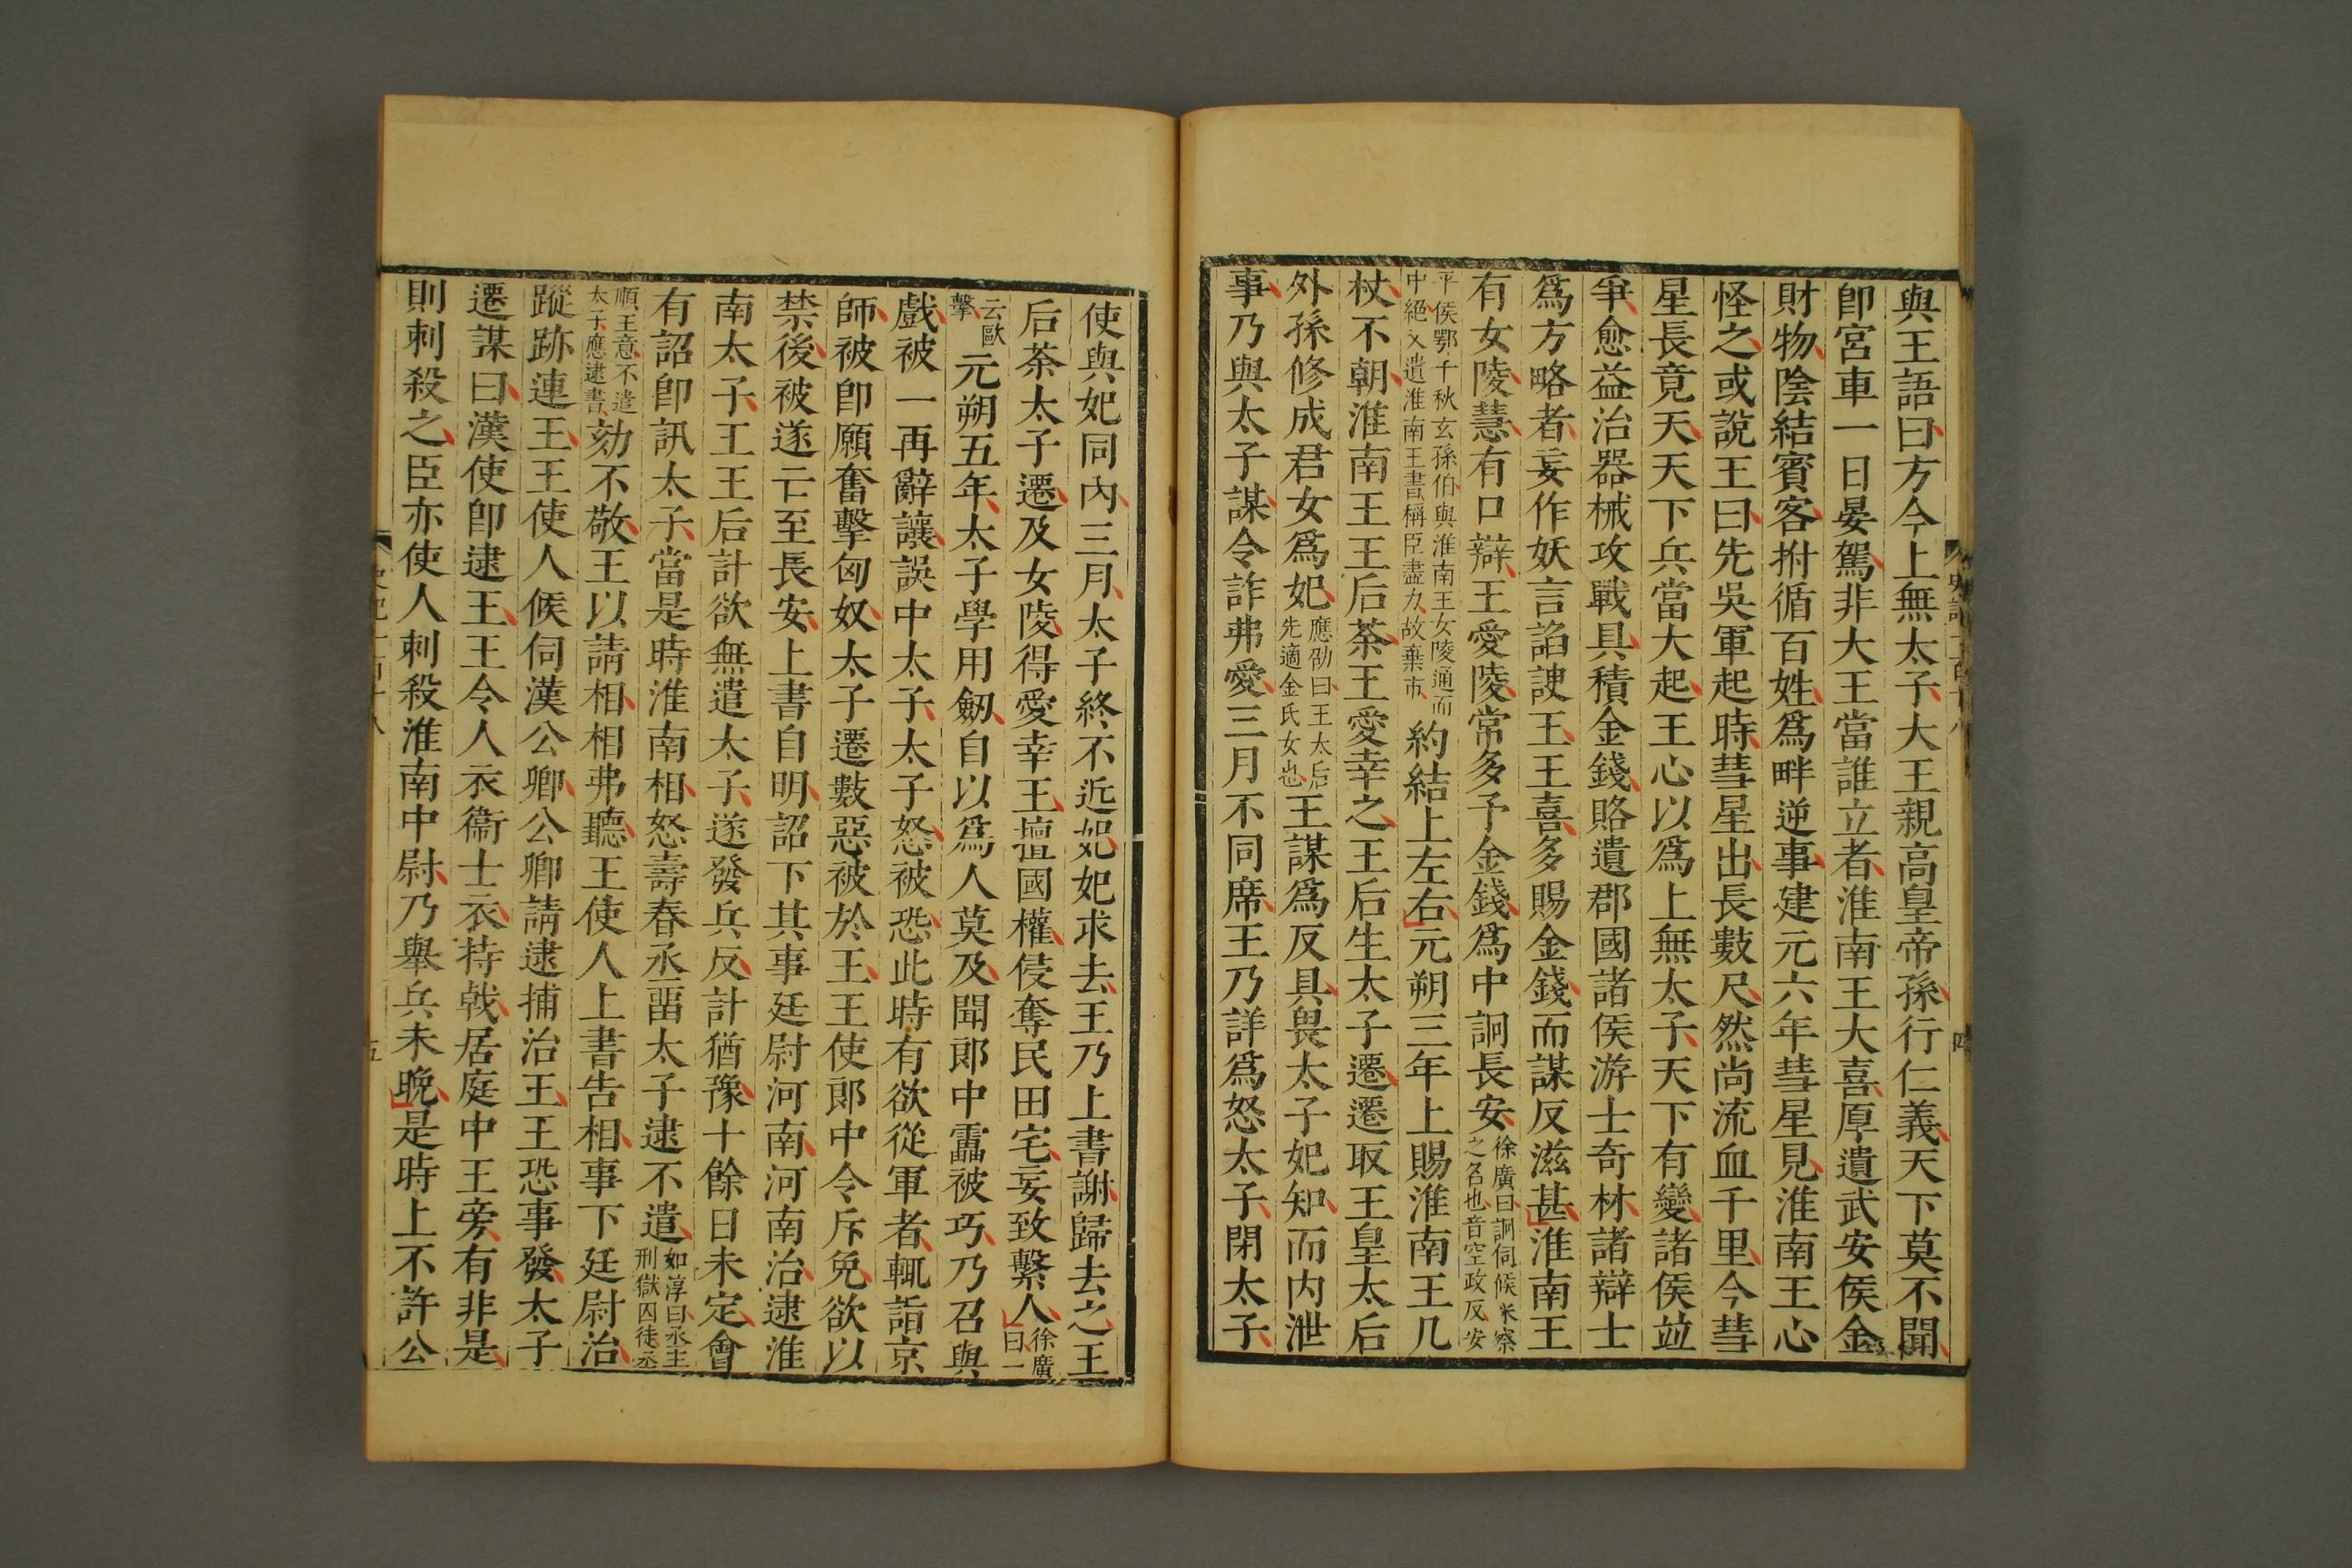 與王語曰方今上無太子大王親高皇帝孫行仁義天下莫不聞
卽宮車一日晏駕非大王當誰立者淮南王大喜厚遺武安侯金
財物陰結賓客拊循百姓爲畔逆事建元六年彗星見淮南王心
怪之或說王曰先吳軍起時彗星出長數尺然尚流血千里今彗
星長竟天天下兵當大起王心以爲上無太子天下有變諸侯竝
爭愈益治器械攻戰具積金錢賂遺郡國諸侯游士奇材諸辯士
爲方略者妄作妖言諂諛王王喜多賜金錢而謀反滋甚淮南王
有女陵慧有口辯王愛陵常多予金錢爲中詗長安徐廣曰詗伺候采察之名也音空政反安
平侯鄂千秋玄孫伯與淮南王女陵通而中絕又遺淮南王書稱臣盡力故棄市約結上左右元朔三年上賜淮南王几
杖不朝淮南王王后荼王愛幸之王后生太子遷遷取王皇太后
外孫修成君女爲妃應劭曰王太后先適金氏女也王謀爲反具畏太子妃知而内泄
事乃與太子謀令詐弗愛三月不同席王乃詳爲怒太子閉太子
史記一百十八
四
使與妃同內三月太子終不近妃妃求去王乃上書謝歸去之王
后荼太子遷及女陵得愛幸王擅國權侵奪民田宅妄致繫人徐廣曰一
云歐擊元朔五年太子學用劒自以爲人莫及聞郞中靁被巧乃召與
戲被一再辭讓誤中太子太子怒被恐此時有欲從軍者輒詣京
師被卽願奮擊匈奴太子遷數惡被於王王使郞中令斥免欲以
禁後被遂亡至長安上書自明詔下其事廷尉河南河南治逮淮
南太子王王后計欲無遣太子遂發兵反計猶豫十餘日未定會
有詔卽訊太子當是時淮南相怒壽春丞畱太子逮不遣如淳曰丞主刑獄囚徒丞
順王意不遣太子應逮書劾不敬王以請相相弗聽王使人上書告相事下廷尉治
蹤跡連王王使人候伺漢公卿公卿請逮捕治王王恐事發太子
遷謀曰漢使卽逮王王令人衣衞士衣持戟居庭中王旁有非是
則刺殺之臣亦使人刺殺淮南中尉乃舉兵未晚是時上不許公
史記一百十八
五